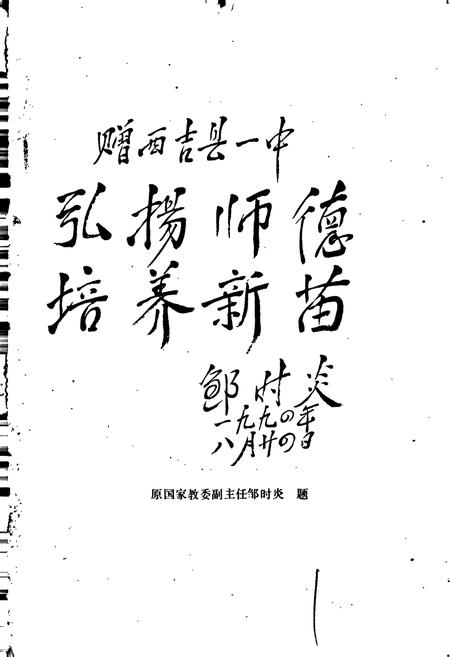 赠西吉县一中
弘揚师德
培养新苗
邹时炎
一九九四年
八月廿四日
原国家教委副主任邹时炎 题